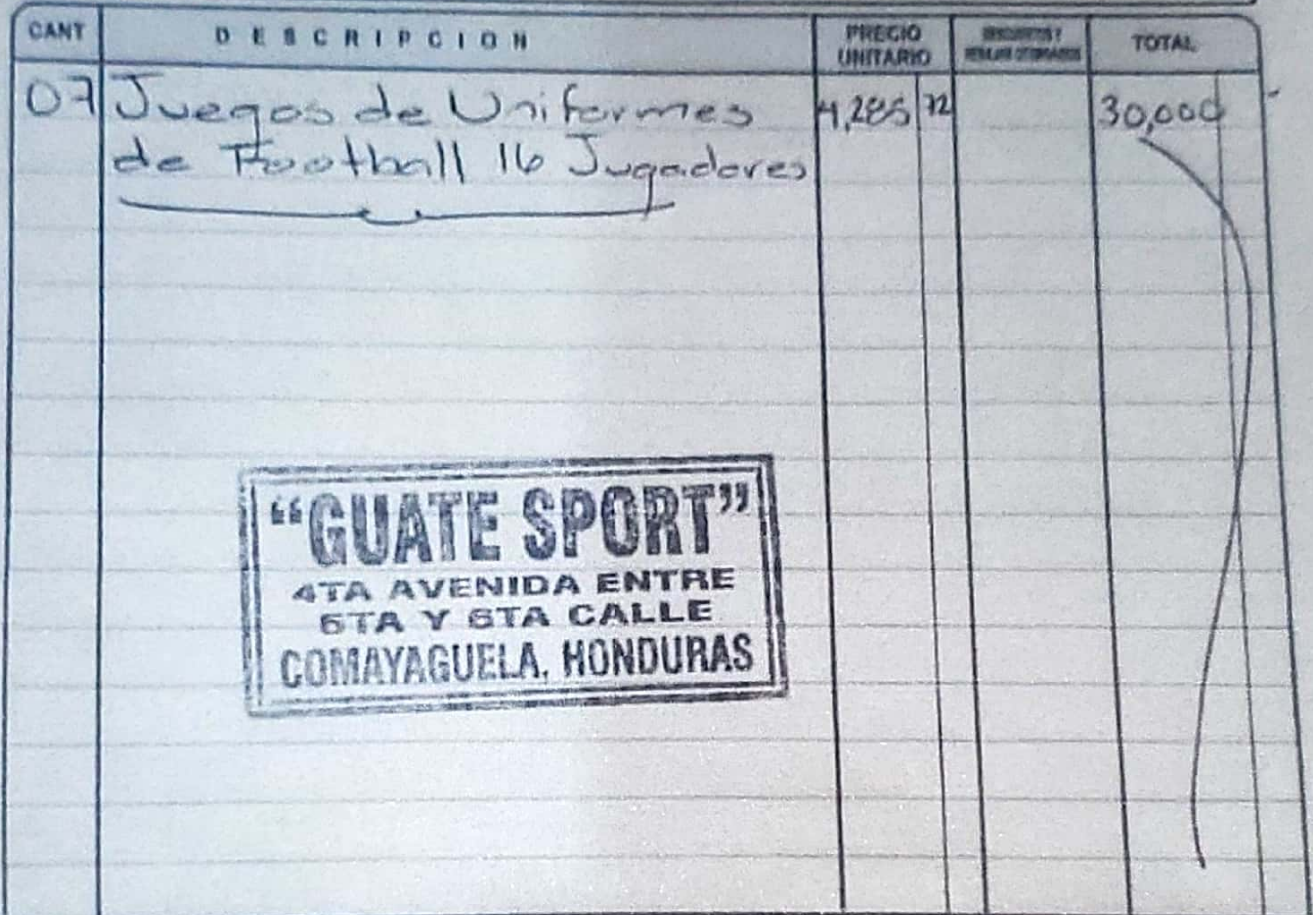 CANT DESCRIPCION PRECIO UNITARIO TOTAL
07 Juegos de Uniformes 4,285 72 30,000
de Football 16 Jugadores
“GUATE SPORT”
4TA AVENIDA ENTRE
5TA Y 6TA CALLE
COMAYAGUELA, HONDURAS